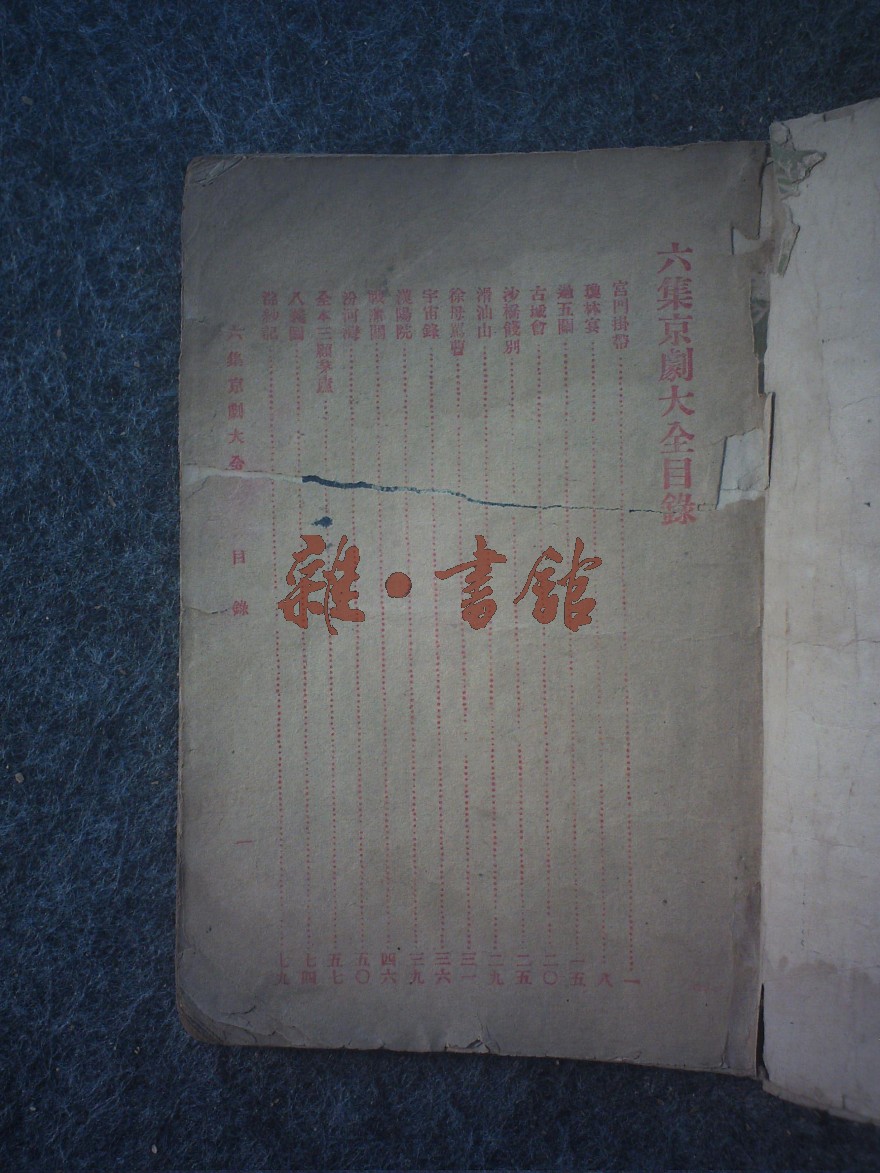 六集京劇大全目錄
宮門掛帶……一
瓊林宴……八
過五關……一五
古城會……二〇
沙橋餞別……二五
滑油山……二九
徐母罵曹……三一
宇宙鋒……三六
漢陽院……三九
戰潼關……四六
汾河灣……五〇
全本三顧茅廬……五七
八義圖……七四
浣紗記……七九
六集京劇大全 目錄 一
雜·書館